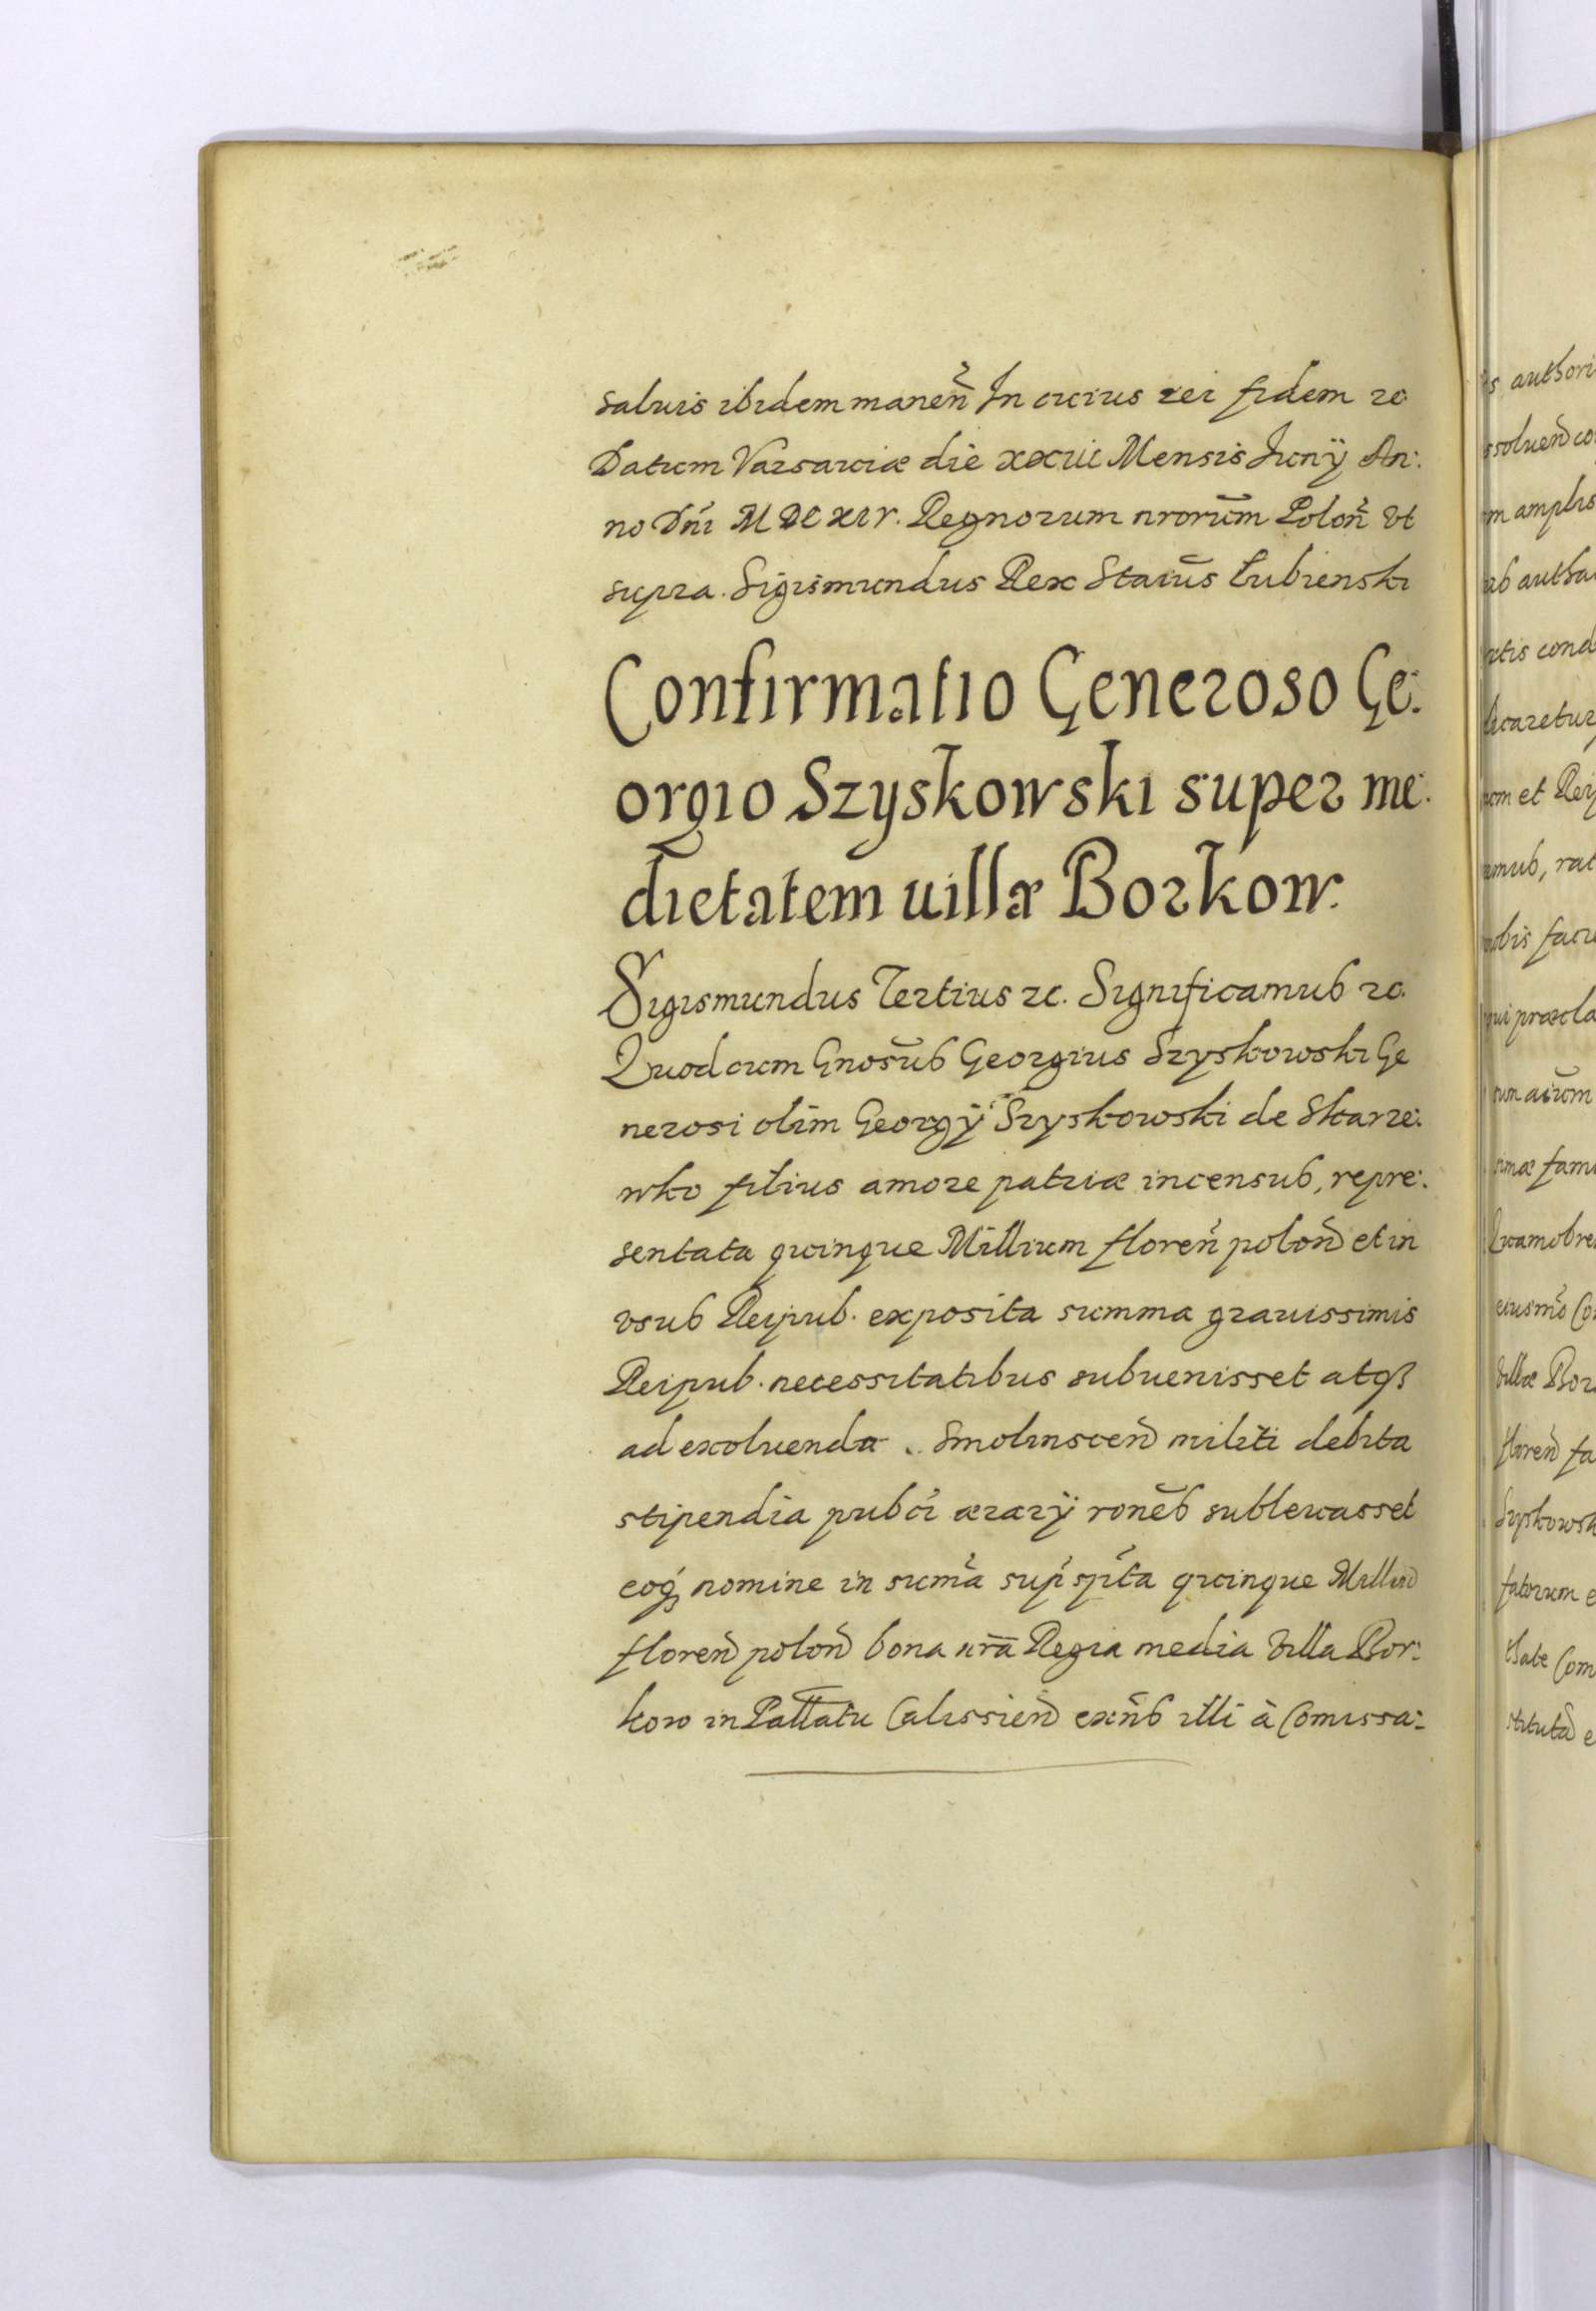 saluis ibidem manen̄ In cuius rei fidem ꝛc
Datum Varsauiæ die xxvii Mensis Junÿ An:
no Dn̄i MDCXIV. Regnorum nrorūm Polon̄ vt
supra. Sigismundus Rex Stanūs Łubienski
Confirmatio Generoso Ge:
orgio Szyskowski super me:
dietatem uillæ Borkow.
Sigismundus Tertius ꝛc. Significamus ꝛc.
Quod cum Gnosūs Georgius Szyskowski Ge
nerosi olim Georgÿ Szyskowski de Skarze:
wko filius amore patriæ incensus, repre:
sentata quinque Millium floren̄ polon̄ et in
vsus Reipub. exposita summa grauissimis
Reipub. necessitatibus subuenisset atqꝫ
ad exoluenda Smolinscen̄ militi debita
stipendia pubci ærarÿ ronēs subleuasset
eoqꝫ nomine in sum̄a sup̄ sp̄ta quinque Milliū
floren̄ polon̄ bona nr̄a Regia media villa Bor:
kow in Pallatu Calissien̄ exn̄s illi à Comissa:
is authori
ssoluen̄ co
m amplis
ab autha
ctis cond
licaretur
um et Reip
emus, rat
nobis facu
qui præcla
imæ fami
Quamobre
eiusm̄o Co
villæ Bor
floren̄ fa
Szyskowsk
fatorum e
Com